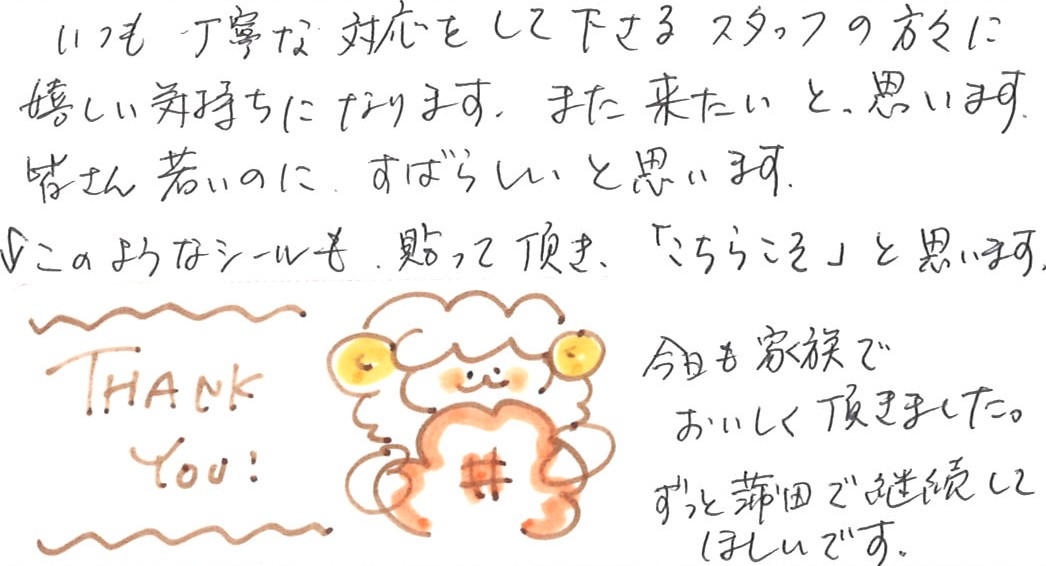 いつも丁寧な対応をして下さるスタッフの方々に
嬉しい気持ちになります。また来たいと、思います。
皆さん若いのに、すばらしいと思います。
↓このようなシールも、貼って頂き、「こちらこそ」と思います。
THANK
YOU!
今日も家族で
おいしく頂きました。
ずっと蒲田で継続して
ほしいです。